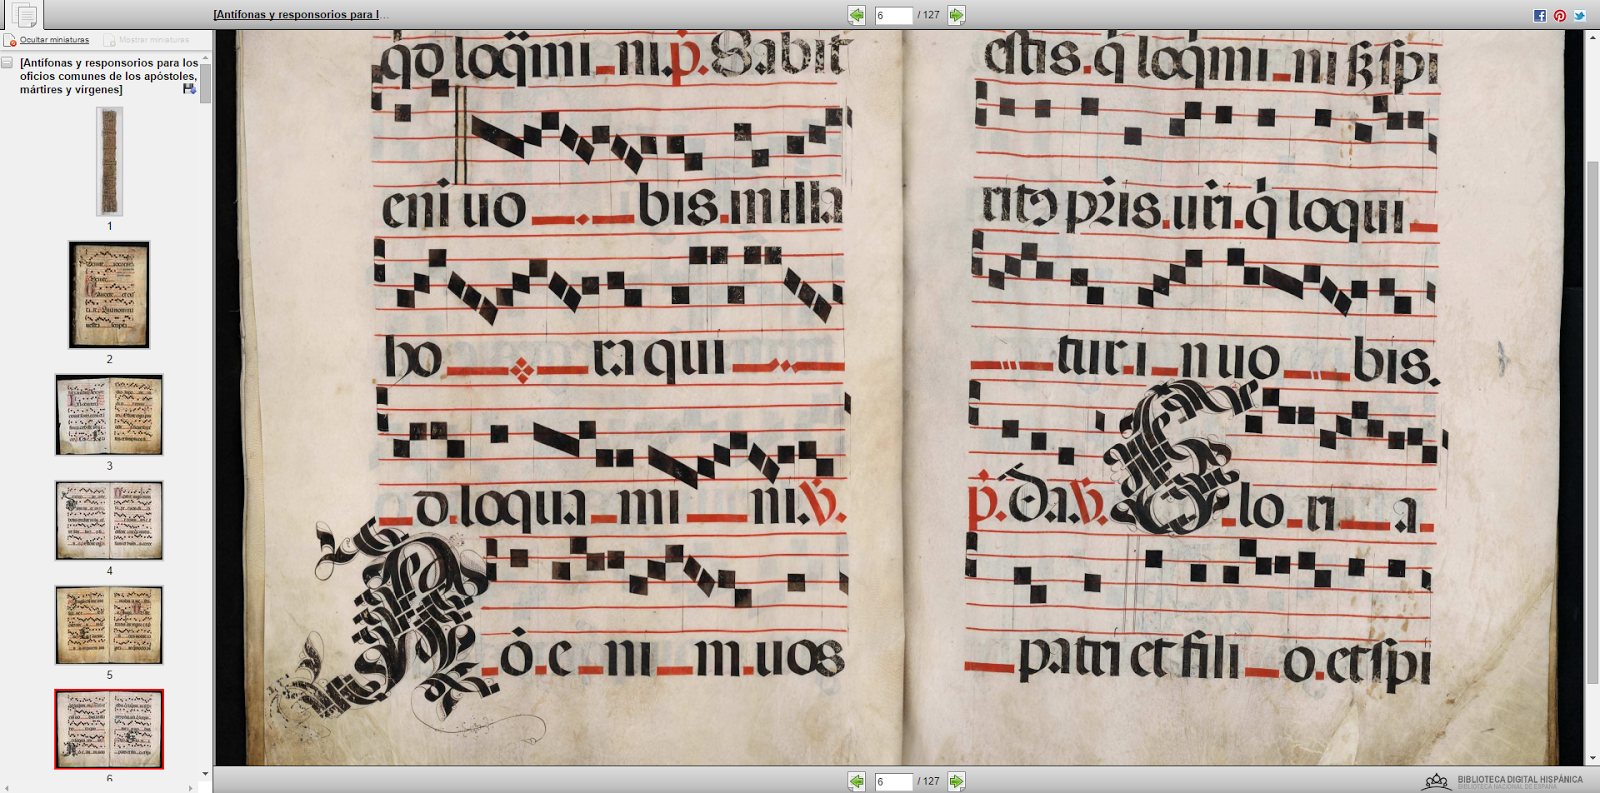 [Antífonas y responsorios para l...
6 / 127
Ocultar miniaturas
Mostrar miniaturas
[Antífonas y responsorios para los
oficios comunes de los apóstoles,
mártires y vírgenes]
1
2
3
4
5
6
q̃d loq̃mi_ni. p. Dabit
eni uo bis. in illa
ho ra qui
d loqua_mi ni. V.
Nō. e_ni_m. uos
estis. q̃ loq̃mi_ni
p̃ris. ur̃i. q̃ loqui
tur. i_n uo bis.
p. Da. V. Glo_ri_a
patri et fili_o. et spi
6 / 127
BIBLIOTECA DIGITAL HISPÁNICA
BIBLIOTECA NACIONAL DE ESPAÑA